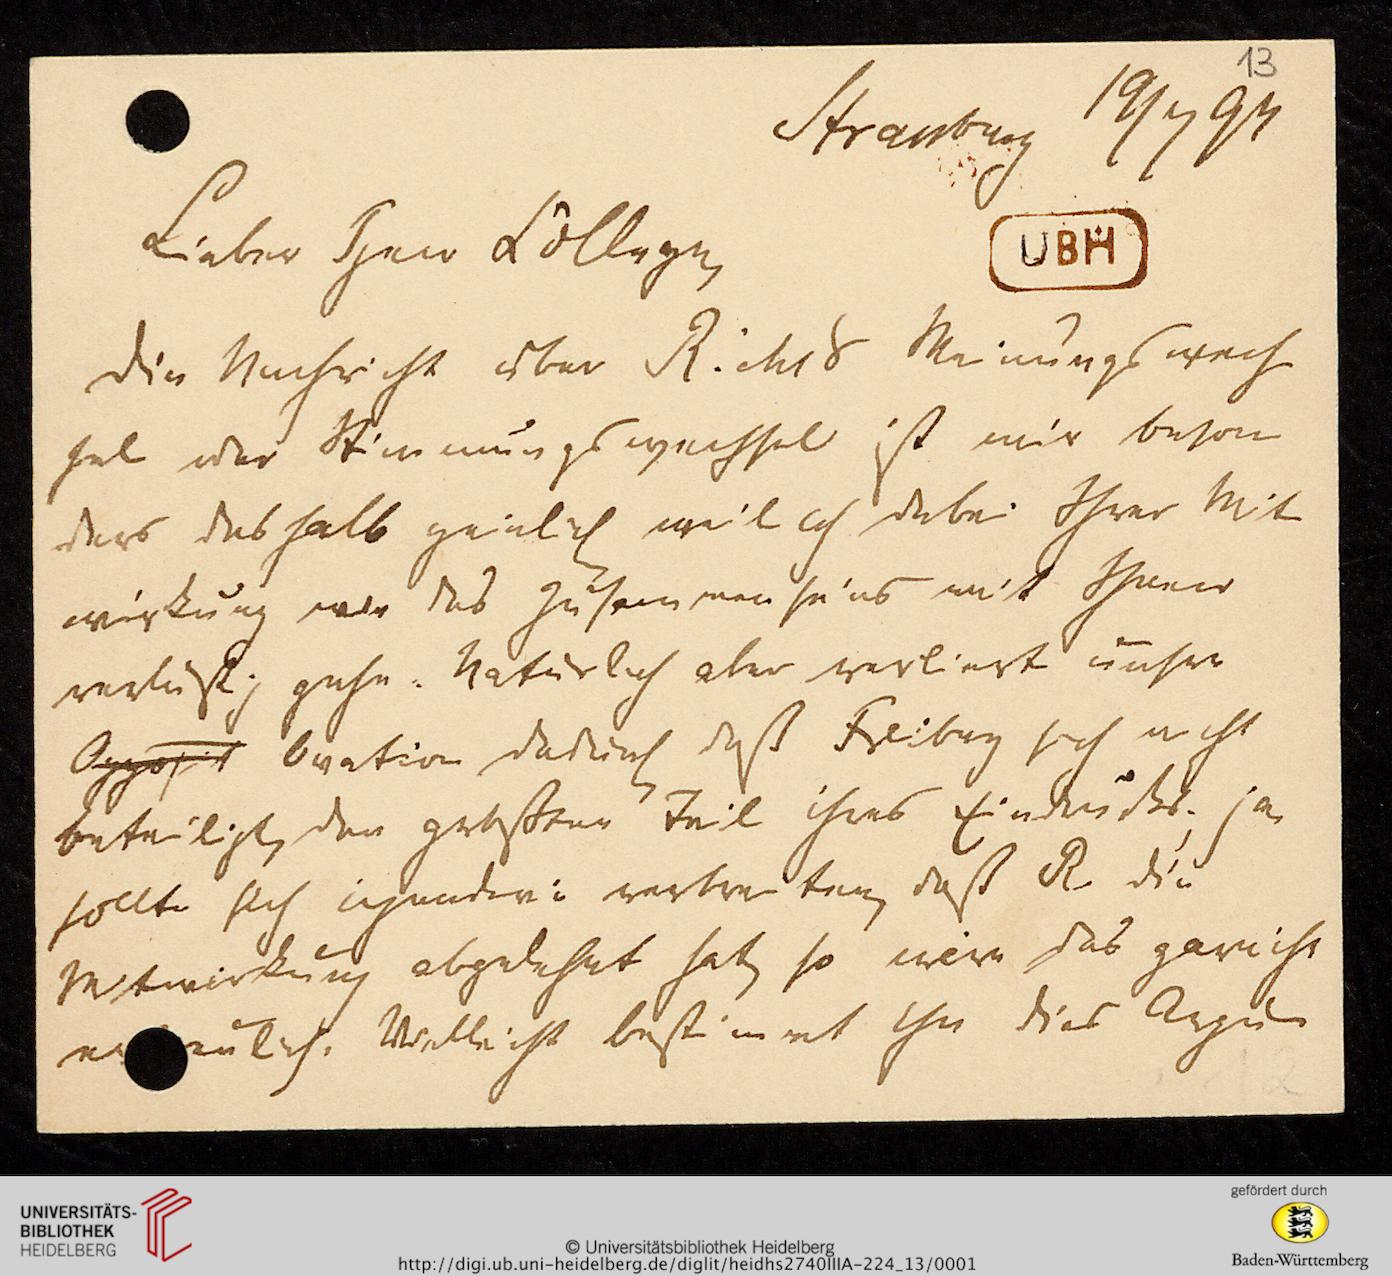 13
Strassburg 19/7 97
UBH
Lieber Herr College,
die Nachricht über Riehls Meinungswech
sel oder Stimmungswechsel ist mir beson
ders deshalb peinlich weil ich dabei Ihrer Mit
wirkung und des Zusammenseins mit Ihnen
verlustig gehe. Natürlich aber verliert unsere
Opposit Ovation dadurch, daß Freiburg sich nicht
beteiligt, den größten Teil ihres Eindrucks; ja,
sollte sich irgendwie verbreiten, daß R. die
Mitwirkung abgelehnt hat, so wäre das garnicht
erfreulich. Vielleicht bestimmt ihn dies Argu
12
UNIVERSITÄTS-
BIBLIOTHEK
HEIDELBERG
© Universitätsbibliothek Heidelberg
http://digi.ub.uni-heidelberg.de/diglit/heidhs2740IIIA-224_13/0001
gefördert durch
Baden-Württemberg